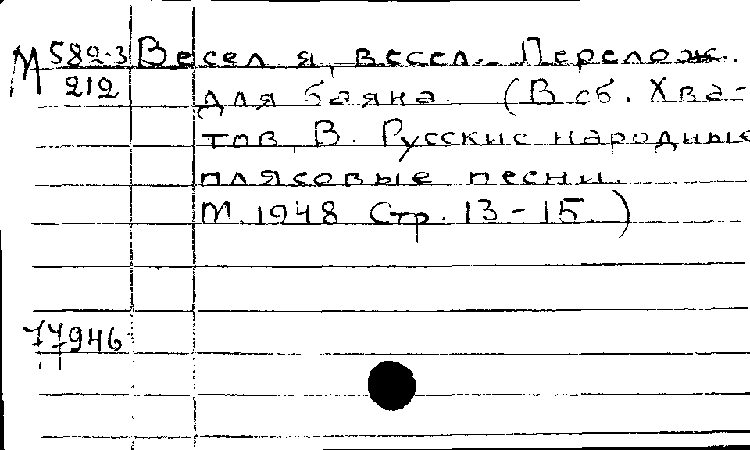 М 582-3 Весел я, весел. Перелож.
212 для баяна (В сб. Хва-
тов, В. Русские народные
плясовые песни.
М. 1948 Стр. 13-15.)
77946